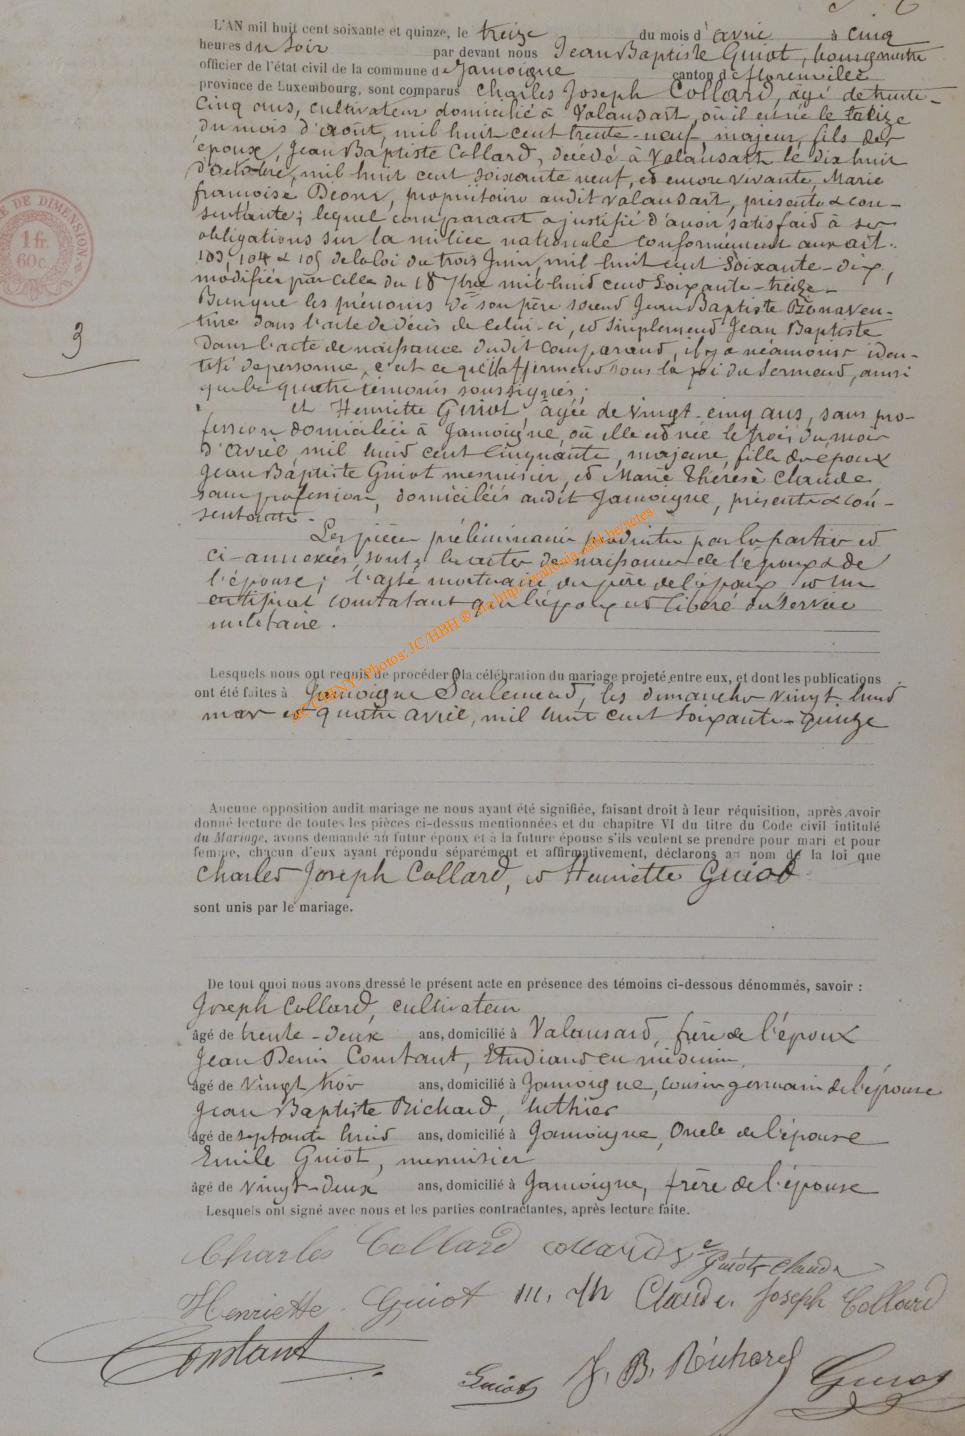 L'AN mil huit cent soixante et quinze, le treize du mois d'avril à cinq
heures du soir par devant nous Jean Baptiste Guiot, bourgmestre
officier de l'état civil de la commune de Jamoigne canton de florenville
province de Luxembourg, sont comparus Charles Joseph Collard, agé de trente-
cinq ans, cultivateur domicilié à Valansart, où il est né le treize
du mois d'août, mil huit cent trente-neuf, majeur, fils des
époux, Jean Baptiste Collard, décédé à Valansart le dix huit
d'octobre, mil huit cent soixante neuf, et encore vivante, Marie
françoise Deom, propriétaire audit Valansart, présente & con-
sentante; lequel comparant a justifié d'avoir satisfait à ses
obligations sur la milice nationale conformément aux art.
103, 104 & 105 de la loi du trois Juin, mil huit cent soixante-dix,
modifiée par celle du 18 7bre mil huit cent soixante-treize.
Bien que les prénoms de son père soient Jean Baptiste Bonaven-
ture dans l'acte de décès de celui-ci, et simplement Jean Baptiste
dans l'acte de naissance dudit comparant, il y a néamoins iden-
tité de personne, c'est ce qu'il affirment sous la foi du serment, ainsi
que les quatre témoins soussignés;
et Henriette Guiot âgée de vingt-cinq ans, sans pro-
fession domiciliée à Jamoigne, où elle est née le trois du mois
d'avril, mil huit cent cinquante, majeure, fille des époux
Jean Baptiste Guiot menuisier, et Marie Thérèse Claude
sans profession, domiciliés audit Jamoigne, présents & con-
sentants.
Les pièces préliminaires produites par les parties et
ci-annexées, sont; les actes de naissance de l'époux & de
l'épouse; l'acte mortuaire du père de l'époux et un
certificat constatant que l'époux est libéré du service
militaire.
ACCHBNT / Photos: JC/HBH
Lesquels nous ont requis de procéder à la célébration du mariage projeté entre eux, et dont les publications
ont été faites à Jamoigne Seulement, les dimanches vingt huit
mars et quatre avril, mil huit cent soixante-quinze
Aucune opposition audit mariage ne nous ayant été signifiée, faisant droit à leur réquisition, après avoir
donné lecture de toutes les pièces ci-dessus mentionnées et du chapitre VI du titre du Code civil intitulé
du Mariage, avons demandé au futur époux et à la future épouse s'ils veulent se prendre pour mari et pour
femme, chacun d'eux ayant répondu séparément et affirmativement, déclarons au nom de la loi que
Charles Joseph Collard, et Henriette Guiot
sont unis par le mariage.
De tout quoi nous avons dressé le présent acte en présence des témoins ci-dessous dénommés, savoir :
Joseph Collard, cultivateur
âgé de trente-deux ans, domicilié à Valansard, frère de l'époux
Jean Denis Constant, Etudiant en médecine,
âgé de vingt trois ans, domicilié à Jamoigne, cousin germain de l'épouse
Jean Baptiste Richard, luthier
âgé de septante huit ans, domicilié à Jamoigne, Oncle de l'épouse
Emile Guiot, menuisier
âgé de vingt-deux ans, domicilié à Jamoigne, frère de l'épouse
Lesquels ont signé avec nous et les parties contractantes, après lecture faite.
Charles Collard Guiot Claude
Henriette Guiot M. Th Claude. Joseph Collard
Constant Guiot J. B. Richard Guiot
3
DE DIMENSION
1 fr.
60c.